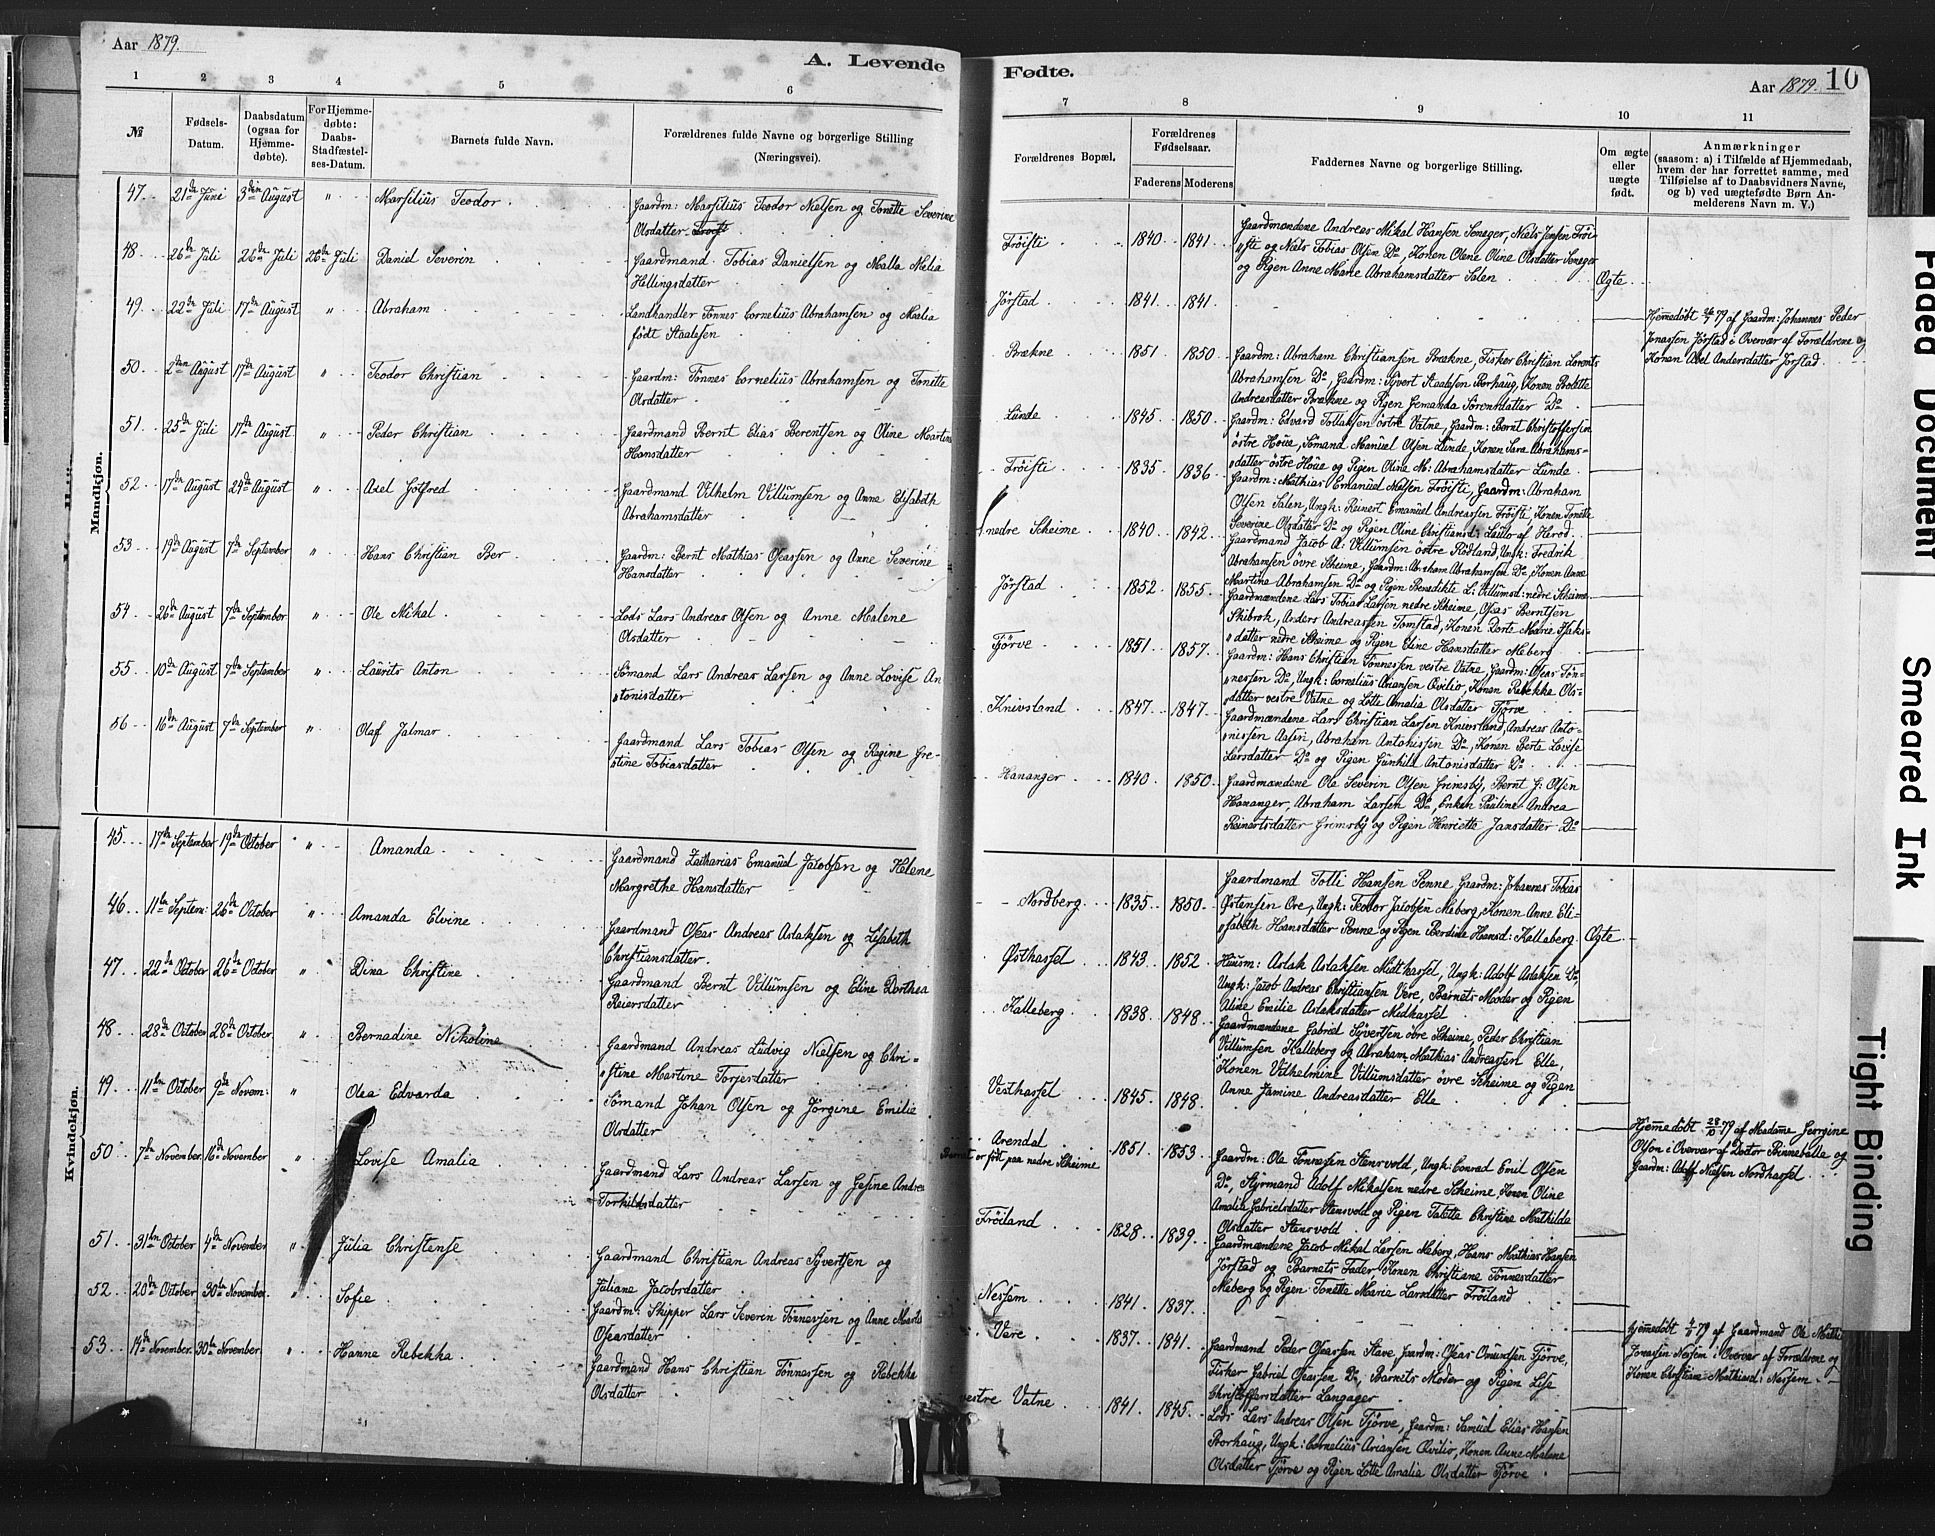 Aar 1879.
A. Levende
1 2 3 4 5 6
№
Fødsels-Datum.
Daabsdatum (ogsaa for Hjemme-døbte).
For Hjemme-døbte: Daabs-Stadfæstel-ses-Datum.
Barnets fulde Navn.
Forældrenes fulde Navne og borgerlige Stilling
(Næringsvei).
Mandkjøn.
47. 21de Juni 3die August " Marsilius Teodor. Gaardm: Marsilius Teodor Nielsen og Tonette Severine
Olsdatter
48 26de Juli 26de Juli 26de Juli Daniel Severin Gaardmand Tobias Danielsen og Malla Melia
Hellingsdatter
49. 22de Juli 17de August " Abraham Landhandler Tönnes Cornelius Abrahamsen og Malia
födt Staalesen
50. 2den August 17de August " Teodor Christian Gaardm: Tönnes Cornelius Abrahamsen og Tonette
Olsdatter
51. 25de Juli 17de August " Peder Christian Gaardmand Bernt Elias Berentsen og Oline Martine
Hansdatter
52 17de August 24de August " Axel Gotfred Gaardmand Vilhelm Villumsen og Anne Elisabeth
Abrahamsdatter
53 19de August 7de September " Hans Christian Ber Gaardm: Bernt Mathias Oseassen og Anne Severine
Hansdatter
54 26de August 7de September " Ole Mikal Lods Lars Andreas Olsen og Anne Malene
Olsdatter
55 10de August 7de September " Laurits Anton Sömand Lars Andreas Larsen og Anne Lovise An
"tonisdatter
56 16de August 7de September " Olaf Jalmar Gaardmand Lars Tobias Olsen og Regine Gre-
"tine Tobiasdatter
Kvindekjøn.
45. 17de September 19de October " Amanda Gaardmand Zakharias Emanuel Jacobsen og Helene
Margrethe Hansdatter
46 11te Septem: 26de October " Amanda Elvine Gaardmand Oseas Andreas Aslaksen og Lisabeth
Christiansdatter.
47. 22de October 26de October " Dina Christine Gaardmand Bernt Villumsen og Eline Dorthea
Reiersdatter
48 28de October 28de October " Bernadine Nikoline Gaardmand Andreas Ludvig Nielsen og Chri-
"stine Martine Torjesdatter
49. 11te October 9de Novem: " Olea Edvarda Sömand Johan Olsen og Jörgine Emilie
Olsdatter
50. 7de November 16de November " Lovise Amalia Gaardmand Lars Andreas Larsen og Gesine Andrea
Torkildsdatter
51. 31te October 4de November " Julia Christense Gaardmand Christian Andreas Syvertsen og
Juliane Jacobsdatter
52. 20de October 30te November. " Sofie Gaardm: Skipper Lars Severin Tönnessen og Anne Marta
Oseasdatter
53. 14de November 30te November. " Hanne Rebekka Gaardmand Hans Christian Tönnessen og Rebekka
Olsdatter
Fødte.
Aar 1879. 10
7 8 9 10 11
Forældrenes Bopæl.
Forældrenes Fødselsaar.
Faderens Moderens
Faddernes Navne og borgerlige Stilling.
Om ægte eller uægte født.
Anmærkninger
(saasom: a) i Tilfælde af Hjemmedaab,
hvem der har forrettet samme, med
Tilføielse af to Daabsvidners Navne,
og b) ved uægtefødte Børn An-
melderens Navn m. V.)
Fröisti 1840 1841 Gaardmændene Andreas Mikal Hansen Seneger, Niels Jensen Fröi-
"sti og Niels Tobias Olsen Do, Konen Olene Oline Olsdatter Seneger
og Pigen Anne Marie Abrahamsdatter Salen Ægte
Jörstad 1841 1841
Hjemedöbt 26/7 79 af Gaardm: Johannes Peder
Jonassen Jörstad i Overvær af Forældrene og
Konen Abel Andersdatter Jörstad
Brækne 1851 1850 Gaardm: Abraham Christiansen Brækne, Fisker Christian Lorents
Abrahamsen Do, Gaardm: Syvert Staalesen Borhaug, Konen Bolette
Andreasdatter Brækne og Pigen Gemanda Sörensdatter Do
Lunde 1845 1850 Gaardm: Edvard Tollaksen östre Vatne, Gaardm: Bernt Christoffersen
östre Houe, Sömand Manuel Olsen Lunde, Konen Sara Abrahams-
"datter östre Houe og Pigen Olina M: Abrahamsdatter Lunde
Fröisti 1835 1836 Gaardm: Mathias Emanuel Nielsen Fröisti, Gaardm: Abraham
Olsen Salen, Ungk: Reinert Emanuel Andreassen Fröisti, Konen Tonette
Severine Olsdatter Do og Pigen Oline Christiansd: af Herod
nedre Skeime 1840 1842 Gaardmand Jacob A: Villumsen östre Rödland, Ungk: Fredrik
Abrahamsen övre Skeime, Gaardm: Abraham Abrahamsen Do, Konen Anne
Martina Abrahamsen Do og Pigen Benedikte L: Villumsd: nedre Skeime
Jörstad 1852 1855 Gaardmændene Lars Tobias Larsen nedre Skeime, Oseas Berntsen
Skibrok, Anders Andreassen Tomstad, Konen Dorte Marie Isaks-
"datter nedre Skeime og Pigen Eline Hansdatter Meberg
Tjörve 1851 1857 Gaardm: Hans Christian Tönnessen vestre Vatne, Gaardm: Oseas Tön-
"nessen Do, Ungk: Cornelius Ariansen Qvilio, Konen Rebekka Ols-
datter vestre Vatne og Lotte Amalia Olsdatter Tjörve
Knivsland 1847 1847 Gaardmændene Lars Christian Larsen Knivsland, Andreas Anto-
"nissen Aasen, Abraham Antonissen Do, Konen Berte Lovise
Larsdatter Do og Pigen Gunhild Antonisdatter Do
Hananger 1840 1850 Gaardmændene Ole Severin Olsen Grimsby, Bernt G: Olsen
Hananger, Abraham Larsen Do, Enken Pauline Andrea
Reinertsdatter Grimsby og Pigen Henriette Jansdatter Do
Nordberg 1835 1850 Gaardmand Tolli Hansen Penne Gaardm: Johannes Tobias
Östensen Ore, Ungk: Teodor Jacobsen Meberg, Konen Anne Eli-
"sabeth Hansdatter Penne og Pigen Berdine Hansd: Kalleberg Ægte
Östhassel 1843 1852 Huusm: Aslak Aslaksen Midthassel, Ungk: Adolf Aslaksen Do,
Ungk: Jacob Andreas Christiansen Vere, Barnets Moder og Pigen
Aline Emilie Aslaksdatter Midhassel
Kalleberg 1838 1848 Gaardmændene Gabriel Syvertsen övre Skeime, Peder Christian
Villumsen Kalleberg og Abraham Mathias Andreassen Elle,
Konen Vilhelmine Villumsdatter övre Skeime og Pigen
Anne Jamine Andreasdatter Elle
Vesthassel 1845 1848
Hjemedöbt 28/10 79 af Madame Georgine
Olsen i Overvær af Doctor Binneballe og
Gaardm: Adolf Nielsen Nordhassel
Arendal
Barnet er födt paa nedre Skeime 1851 1853 Gaardm: Ole Tönnessen Stensvold, Ungk: Conrad Emil Olsen
Do, Styrmand Adolf Mikalsen nedre Skeime, Konen Oline
Amalia Gabrielsdatter Stensvold og Pigen Talette Christine Mathilda
Olsdatter Stensvold
Fröiland 1828 1839 Gaardmændene Jacob Mikal Larsen Meberg, Hans Mathias Hansen
Jörstad og Barnets Fader Konen Christiane Tönnesdatter
Meberg og Pigen Tonette Marie Larsdatter Fröiland
Nesjem 1841 1837
Hjemedöbt 4/11 79 af Gaardmand Ole
Jonassen Nesjem i Overvær af Forældrene og
Konen Christiane Mathiasd: Nesjem
Vere 1837 1841 Gaardmand Peder Oseassen Stave, Gaardm: Oseas Omundsen Tjörve,
Fisker Gabriel Oseassen Do, Barnets Moder og Pigen Lise
Christoffersdatter Langager
vestre Vatne 1841 1845 Lods Lars Andreas Olsen Tjörve, Gaardm: Samuel Elias Hansen
Borhaug, Ungk: Cornelius Ariansen Qvilio, Konen Anne Malene
Olsdatter Tjörve og Pigen Lotte Amalia Olsdatter Tjörve
Faded Document
Smeared Ink
Tight Binding